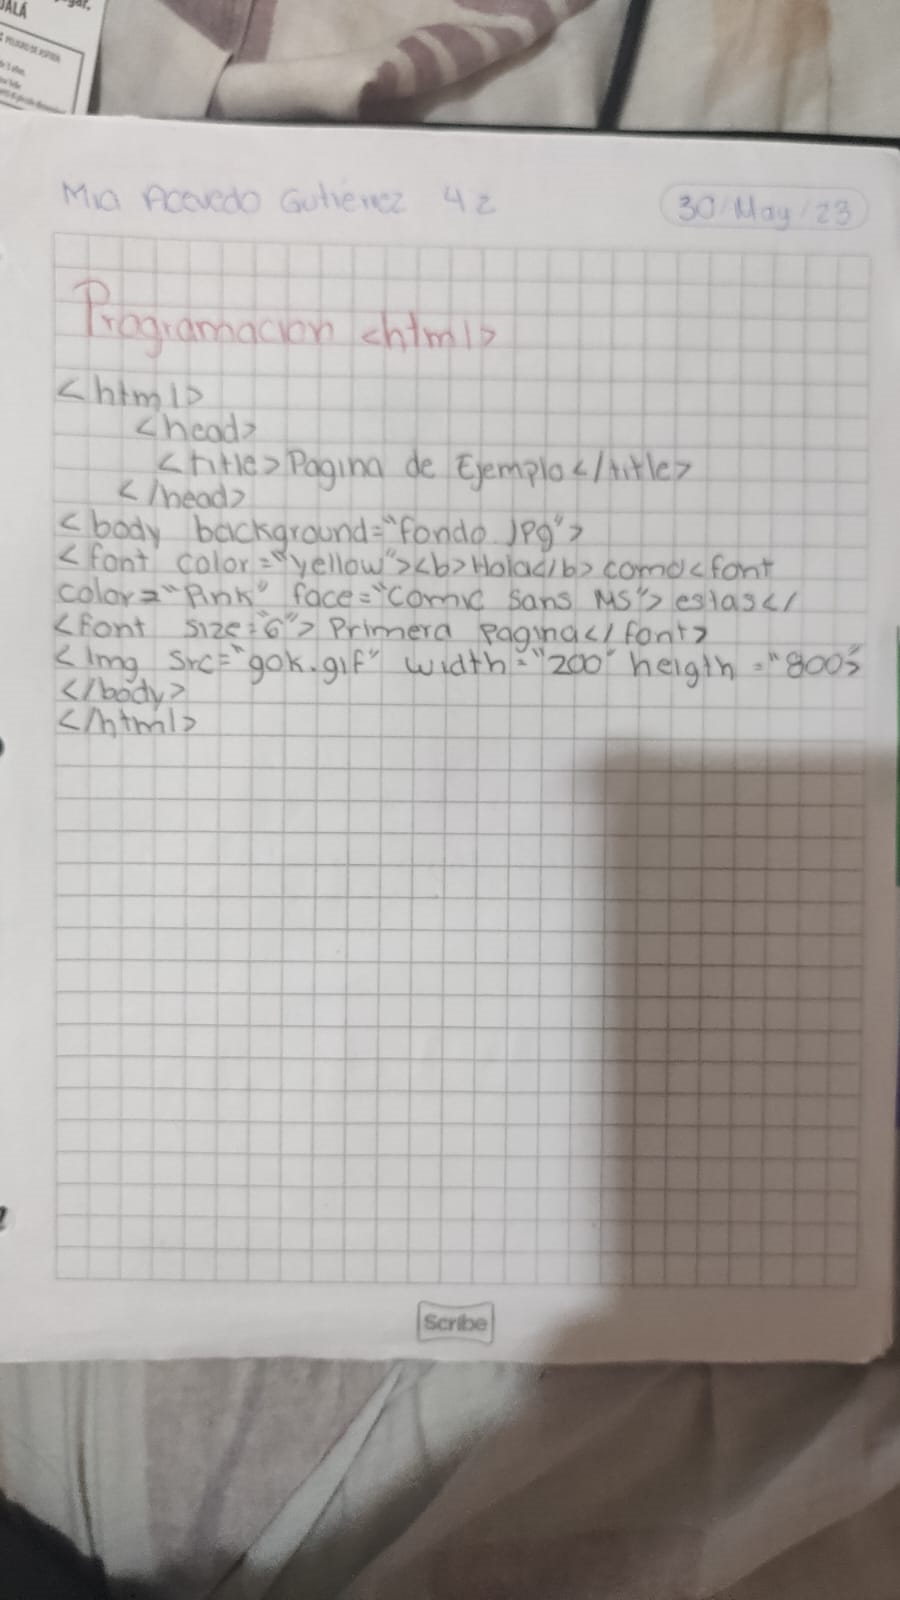 JALÁ
ugar.
PELIGRO DE ASFIXIA
Mia Acevedo Gutiérrez 4z
30/May/23
Programacion <html>
<html>
<head>
<title>Pagina de Ejemplo</title>
</head>
<body background="fondo.jpg">
<font color="yellow"><b>Hola</b>como<font
color="Pink" face="comic sans MS">estas</
<font size="6">Primera pagina</font>
<Img src="gok.gif" width="200" heigth="800">
</body>
</html>
Scribe